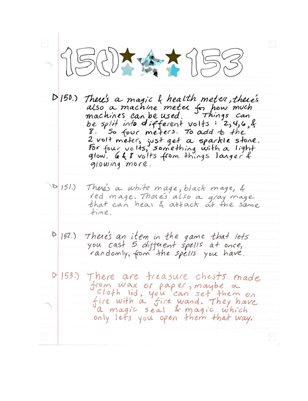 150 153
150.) There's a magic & health meter, there's
also a machine meter for how much
machines can be used. Things can
be split into different volts: 2, 4, 6, &
8. So four meters. To add to the
2 volt meter, just get a sparkle stone.
For four volts, something with a light
glow. 6 & 8 volts from things larger &
glowing more.
151.) There's a white mage, black mage, &
red mage. There's also a gray mage
that can heal & attack at the same
time.
152.) There's an item in the game that lets
you cast 5 different spells at once,
randomly, from the spells you have.
153.) There are treasure chests made
from wax or paper, maybe a
cloth lid, you can set them on
fire with a fire wand. They have
a magic seal & magic which
only lets you open them that way.